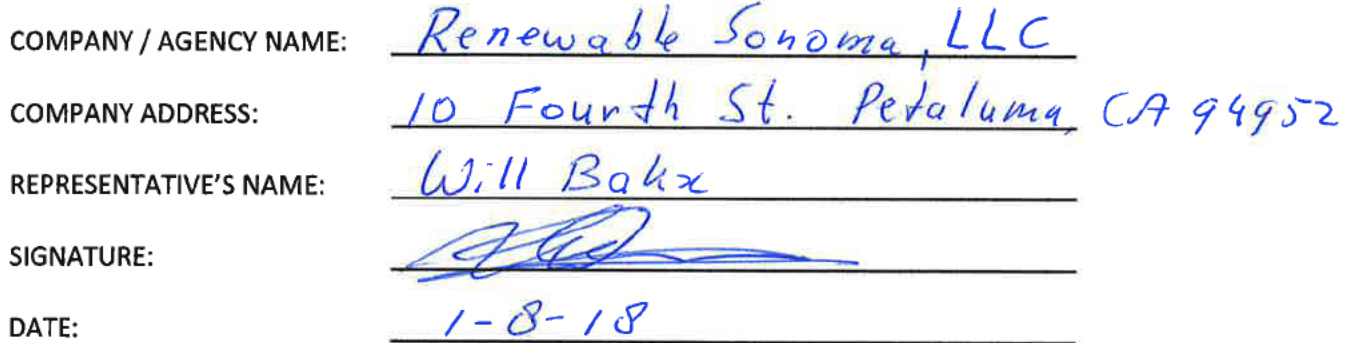 COMPANY / AGENCY NAME: Renewable Sonoma, LLC
COMPANY ADDRESS: 10 Fourth St. Petaluma, CA 94952
REPRESENTATIVE'S NAME: Will Bakx
SIGNATURE:
DATE: 1-8-18